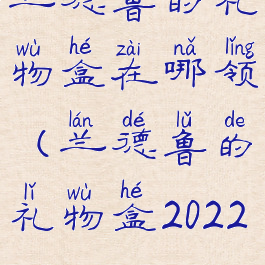 兰德鲁的礼
wù hé zài nǎ lǐng
物盒在哪领
lán dé lǔ de
(兰德鲁的
lǐ wù hé
礼物盒2022